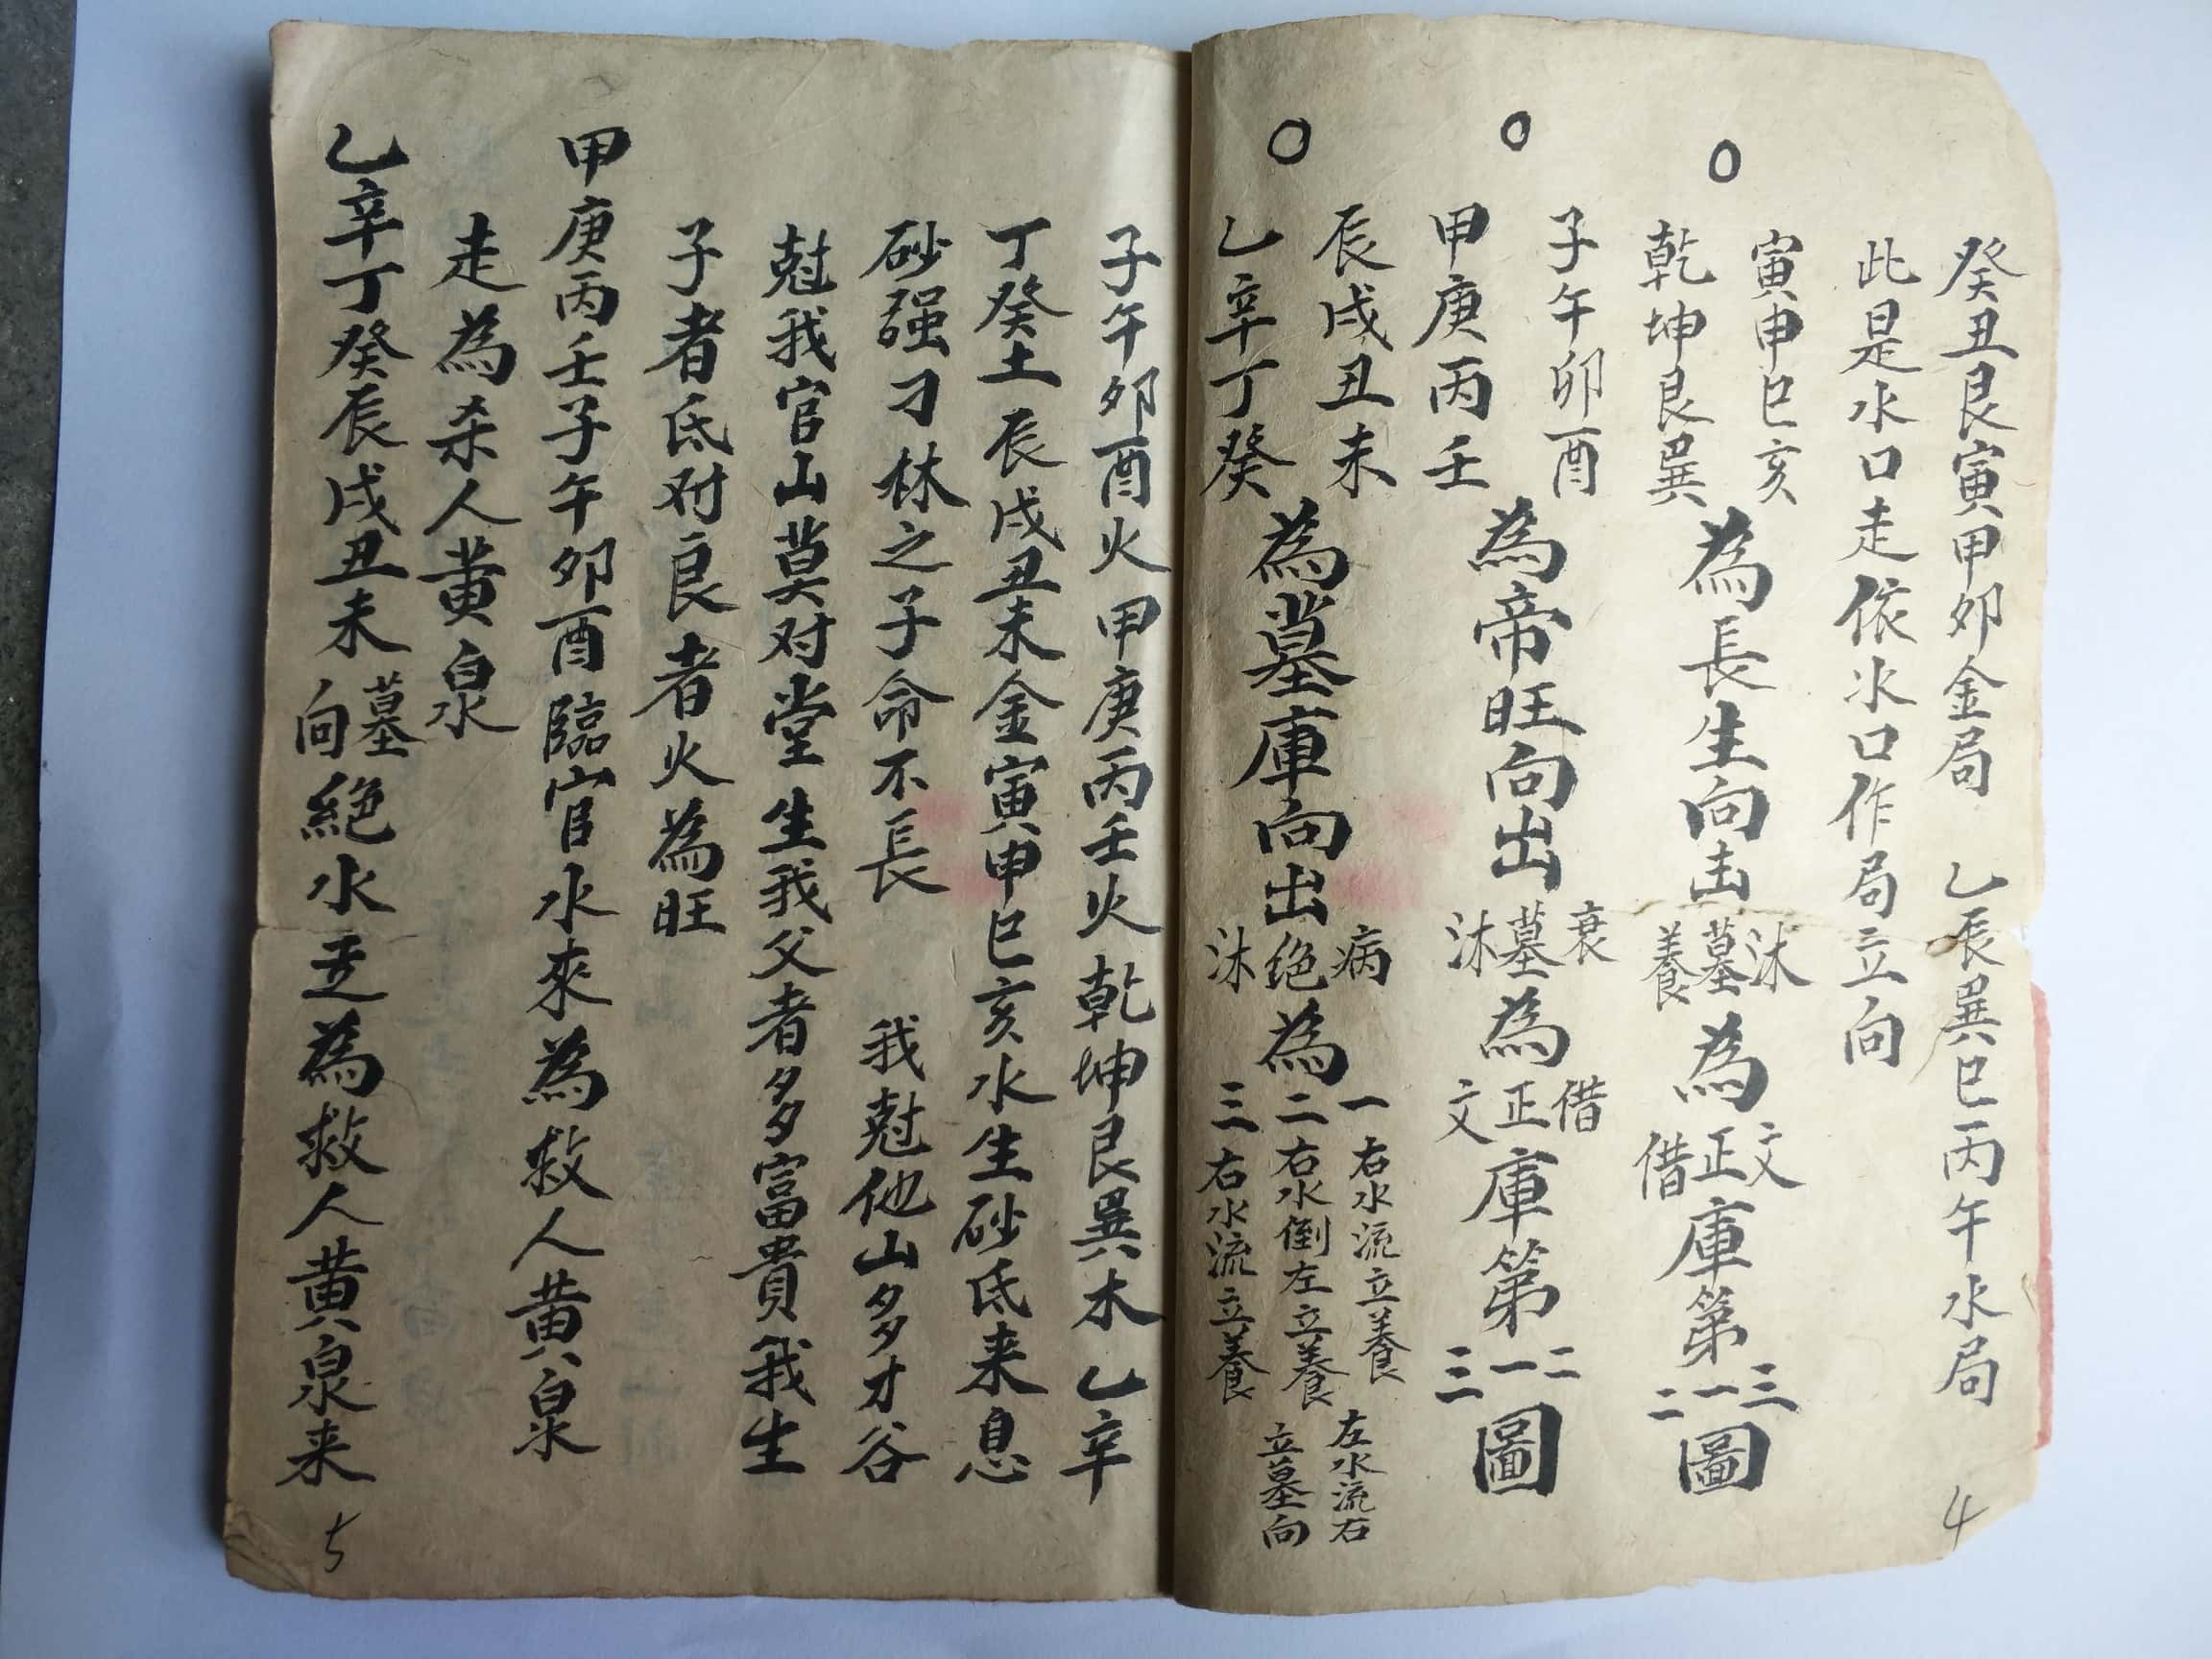 癸丑艮寅甲卯金局 乙辰巽巳丙午水局
此是水口走依水口作局立向
○
寅申巳亥
乾坤艮巽
為長生向出
沐
墓
養
為
文
正
借
庫第
三
一
二
圖
○
子午卯酉
甲庚丙壬
為帝旺向出
衰
墓
沐
為
借
正
文
庫第
二
一
三
圖
○
辰戌丑未
乙辛丁癸
為墓庫向出
病
绝
沐
為
一右水流立養
二右水倒左立養
三右水流立養
左水流右
立墓向
4
子午卯酉火甲庚丙壬火乾坤艮巽木乙辛
丁癸土辰戌丑未金寅申巳亥水生砂氐来息
砂强刁林之子命不長 我尅他山多才谷
尅我官山莫对堂生我父者多富貴我生
子者氐对良者火為旺
甲庚丙壬子午卯酉臨官水來為救人黄泉
走為杀人黄泉
乙辛丁癸辰戌丑未
墓
向
絕水
為救人黄泉来
5